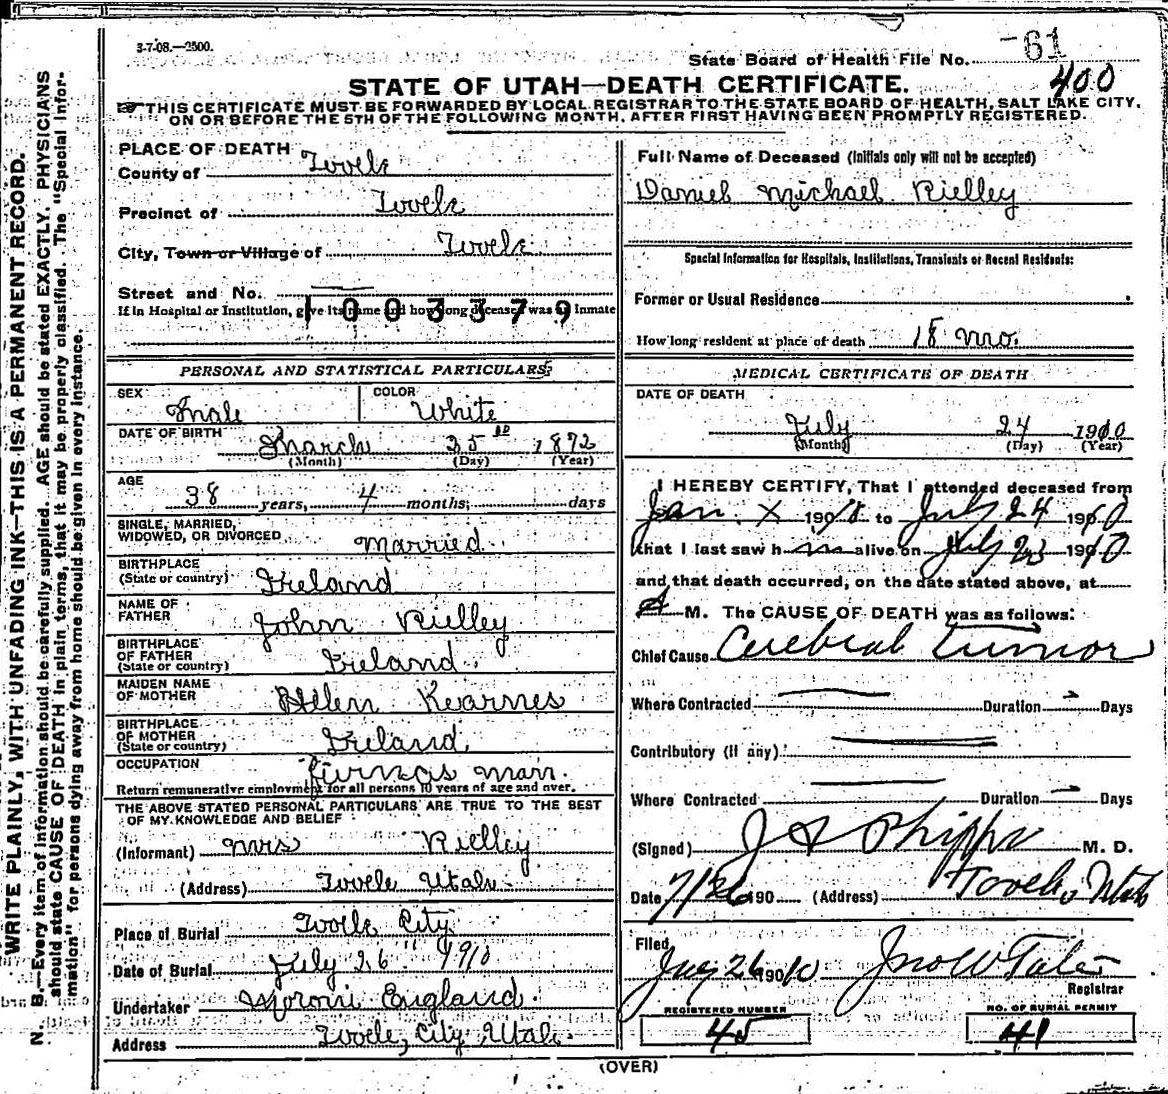 3-7-08.—2500.
State Board of Health File No. -61
400
STATE OF UTAH—DEATH CERTIFICATE.
☞THIS CERTIFICATE MUST BE FORWARDED BY LOCAL REGISTRAR TO THE STATE BOARD OF HEALTH, SALT LAKE CITY,
ON OR BEFORE THE 5TH OF THE FOLLOWING MONTH, AFTER FIRST HAVING BEEN PROMPTLY REGISTERED.
WRITE PLAINLY, WITH UNFADING INK—THIS IS A PERMANENT RECORD.
N. B.—Every item of information should be carefully supplied. AGE should be stated EXACTLY. PHYSICIANS
should state CAUSE OF DEATH in plain terms, that it may be properly classified. The "Special Infor-
mation" for persons dying away from home should be given in every instance.
PLACE OF DEATH
County of Tooele
Precinct of Tooele
City, Town or Village of Tooele
Street and No.
1003379
If in Hospital or Institution, give its name and how long deceased was an inmate
PERSONAL AND STATISTICAL PARTICULARS
SEX Male COLOR White
DATE OF BIRTH March 25 1872
(Month) (Day) (Year)
AGE
38 years, 4 months, days
SINGLE, MARRIED,
WIDOWED, OR DIVORCED Married
BIRTHPLACE
(State or country) Ireland
NAME OF
FATHER John Rielley
BIRTHPLACE
OF FATHER
(State or country) Ireland
MAIDEN NAME
OF MOTHER Hellen Kearnes
BIRTHPLACE
OF MOTHER
(State or country) Ireland
OCCUPATION Furnas Man.
Return remunerative employment for all persons 10 years of age and over.
THE ABOVE STATED PERSONAL PARTICULARS ARE TRUE TO THE BEST
OF MY KNOWLEDGE AND BELIEF
(Informant) Mrs Rielley
(Address) Tooele Utah
Place of Burial Tooele City
Date of Burial July 26 1910
Undertaker Moroni England.
Address Tooele, City Utah.
Full Name of Deceased (Initials only will not be accepted)
Daniel Michael Rielley
Special Information for Hospitals, Institutions, Transients or Recent Residents:
Former or Usual Residence
How long resident at place of death 18 mo.
MEDICAL CERTIFICATE OF DEATH
DATE OF DEATH
July 24 1910
(Month) (Day) (Year)
I HEREBY CERTIFY, That I attended deceased from
Jan. X 190 to July 24 1910
that I last saw h m alive on July 23 1910
and that death occurred, on the date stated above, at
A M. The CAUSE OF DEATH was as follows:
Chief Cause Cerebral tumor
Where Contracted Duration Days
Contributory (if any)
Where Contracted Duration Days
(Signed) J A Phipps M. D.
Date 7/26 190 (Address) Tooele, Utah
Filed
26 1910 Jno W Tate
Registrar
REGISTERED NUMBER
45
NO. OF BURIAL PERMIT
41
(OVER)